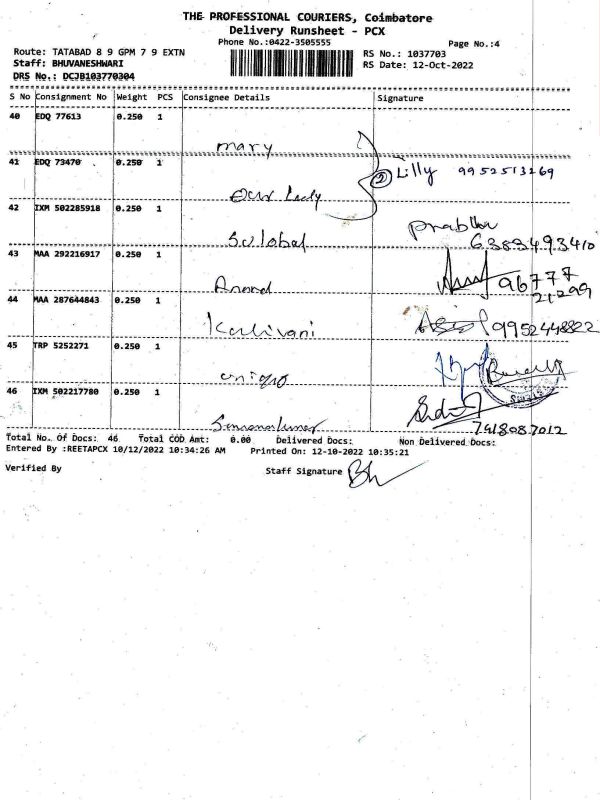 THE PROFESSIONAL COURIERS, Coimbatore
Delivery Runsheet - PCX
Phone No.:0422-3505555
Page No.:4
Route: TATABAD 8 9 GPM 7 9 EXTN
RS No.: 1037703
Staff: BHUVANESHWARI
RS Date: 12-Oct-2022
DRS No.: DCJB103770304
S No Consignment No Weight PCS Consignee Details Signature
40 EDQ 77613 0.250 1
mary
41 EDY 73470 0.250 1
② Lilly 9952513269
Our Lady
42 IXM 502285918 0.250 1
Prabhu
6383493410
43 MAA 292216917 0.250 1
Anand
96777
21299
44 MAA 287644843 0.250 1
Kalivani
9952448822
45 TRP 5252271 0.250 1
46 IXM 502217780 0.250 1
7418087012
Total No. Of Docs: 46 Total COD Amt: 0.00 Delivered Docs: Non Delivered Docs:
Entered By :REETAPCX 10/12/2022 10:34:26 AM Printed On: 12-10-2022 10:35:21
Verified By Staff Signature